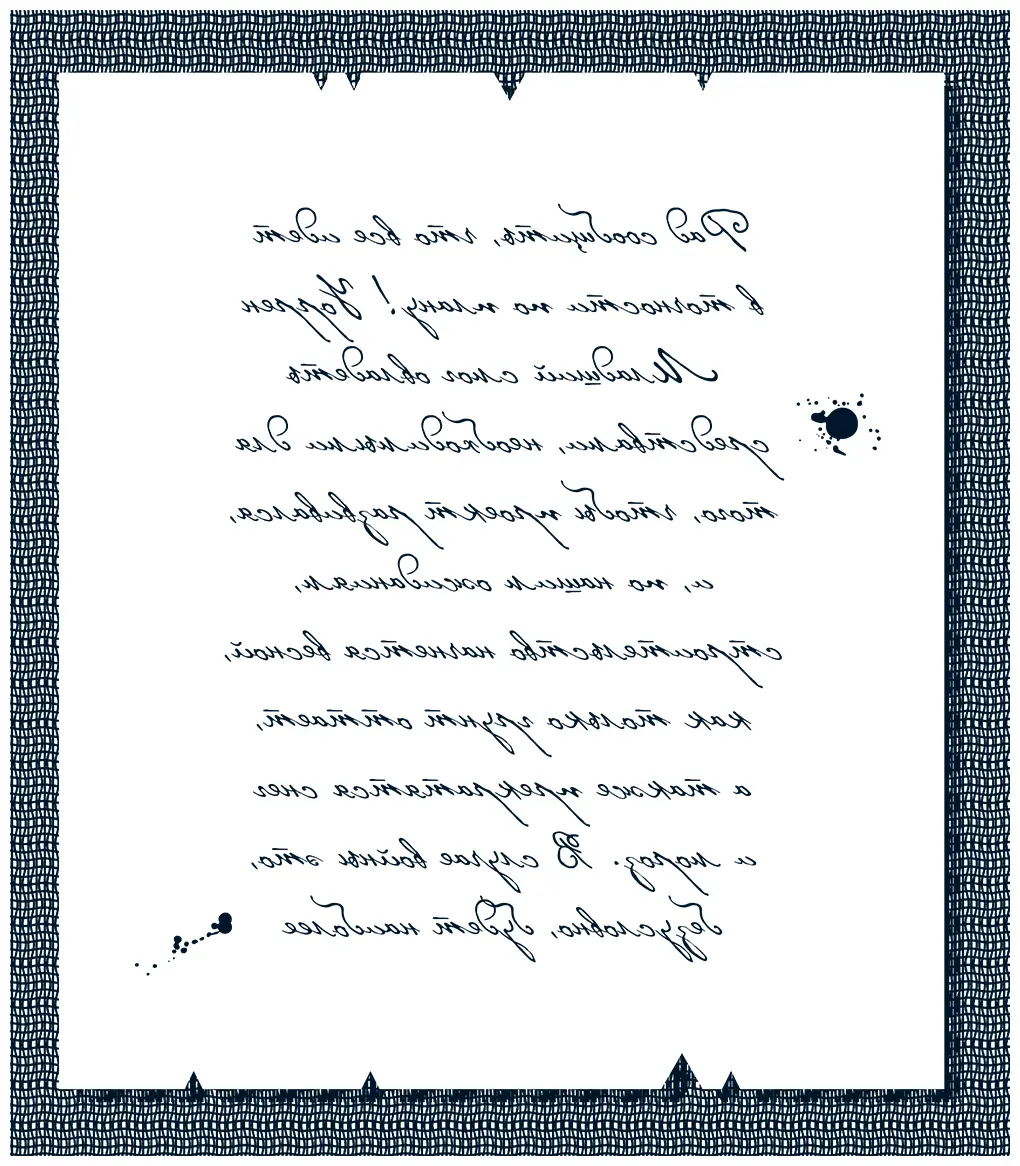 Рад сообщить, что все идет
в точности по плану! Уоррен
Младший смог овладеть
средствами, необходимыми для
того, чтобы проект развивался,
и, по нашим ожиданиям,
строительство начнется весной,
как только грунт оттает,
а также прекратятся снег
и мороз. В случае войны это,
безусловно, будет наиболее